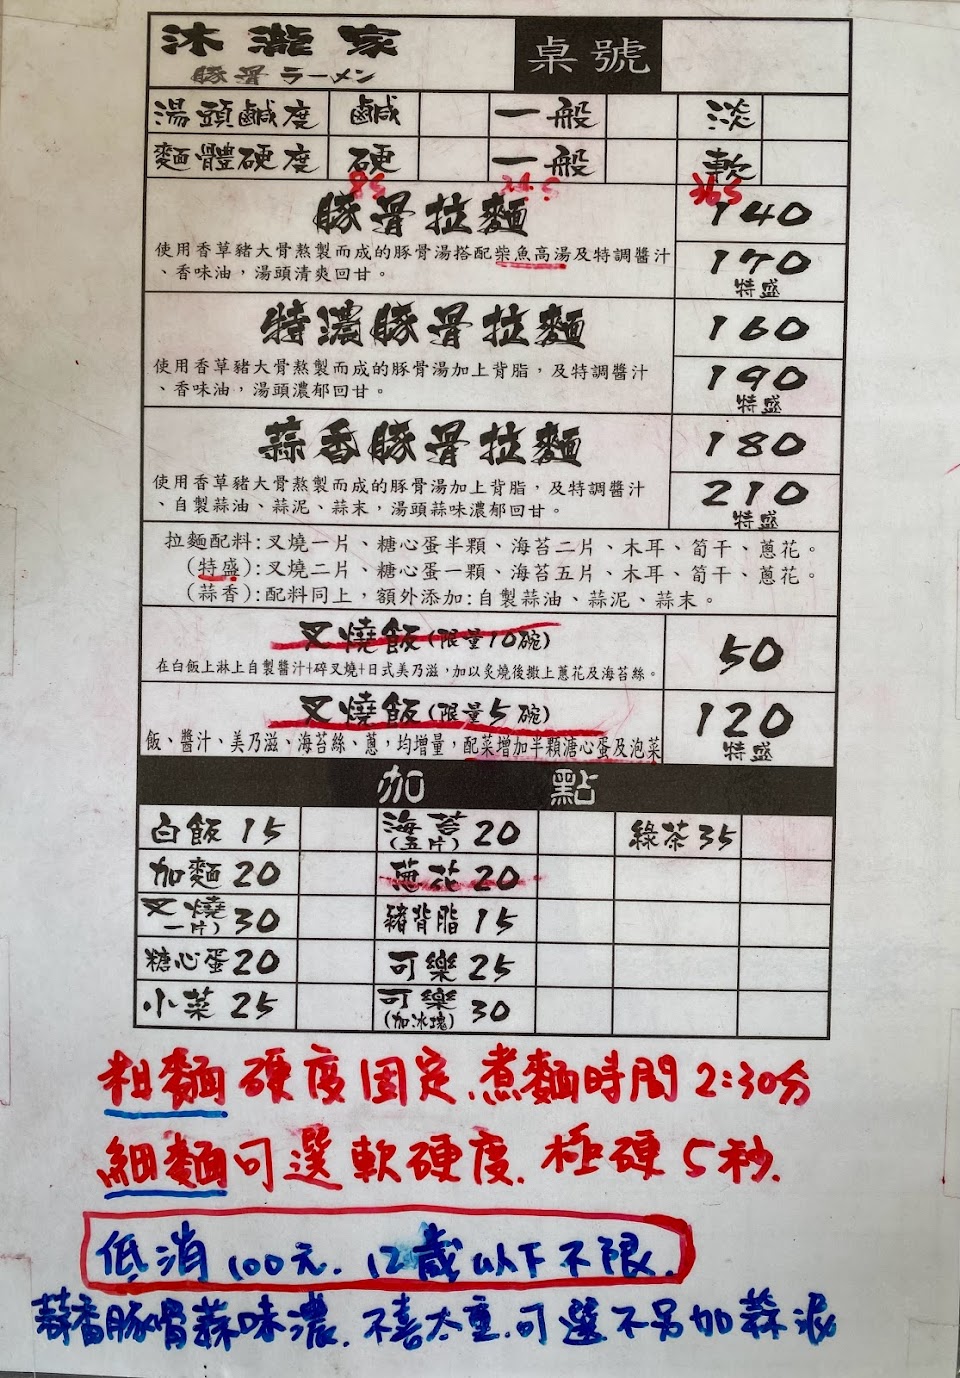 沐瀧家 桌號
豚骨ラーメン
湯頭鹹度 鹹 一般 淡
麵體硬度 硬 一般 軟
豚骨拉麵 140
使用香草豬大骨熬製而成的豚骨湯搭配柴魚高湯及特調醬汁
、香味油,湯頭清爽回甘。
170
特盛
特濃豚骨拉麵 160
使用香草豬大骨熬製而成的豚骨湯加上背脂,及特調醬汁
、香味油,湯頭濃郁回甘。
190
特盛
蒜香豚骨拉麵 180
使用香草豬大骨熬製而成的豚骨湯加上背脂,及特調醬汁
、自製蒜油、蒜泥、蒜末,湯頭蒜味濃郁回甘。
210
特盛
拉麵配料:叉燒一片、糖心蛋半顆、海苔二片、木耳、筍干、蔥花。
(特盛):叉燒二片、糖心蛋一顆、海苔五片、木耳、筍干、蔥花。
(蒜香):配料同上,額外添加:自製蒜油、蒜泥、蒜末。
叉燒飯(限量10碗) 50
在白飯上淋上自製醬汁+碎叉燒+日式美乃滋,加以炙燒後撒上蔥花及海苔絲。
叉燒飯(限量5碗) 120
特盛
飯、醬汁、美乃滋、海苔絲、蔥,均增量,配菜增加半顆溏心蛋及泡菜
加 點
白飯 15 海苔(五片) 20 綠茶 35
加麵 20 蔥花 20
叉燒(一片) 30 豬背脂 15
糖心蛋 20 可樂 25
小菜 25 可樂(加冰塊) 30
粗麵硬度固定.煮麵時間2:30分
細麵可選軟硬度.極硬5秒.
低消100元.12歲以下不限.
蒜香豚骨蒜味濃.不喜太重.可選不另加蒜泥